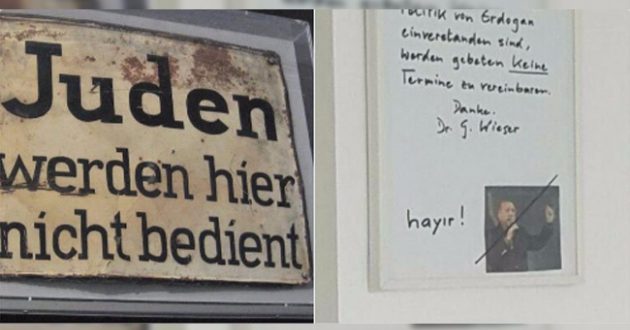 Juden
werden hier
nicht bedient
Politik von Erdogan
einverstanden sind,
werden gebeten keine
Termine zu vereinbaren.
Danke.
Dr. G. Wieser
hayır!